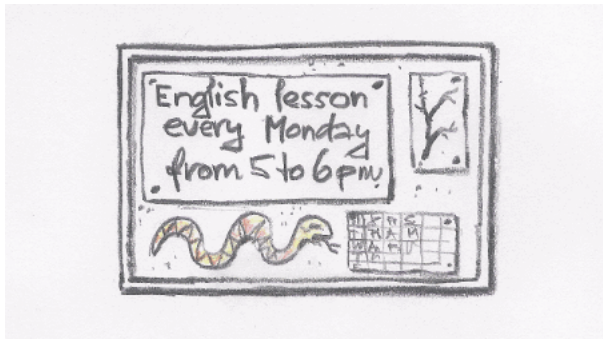 English lesson
every Monday
from 5 to 6 pm